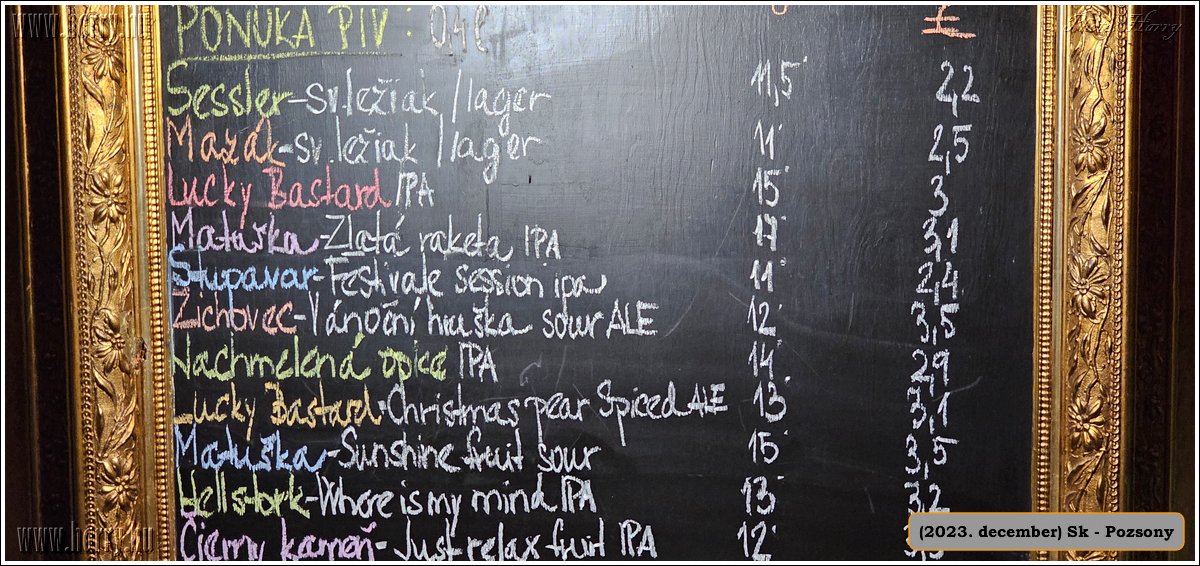 PONUKA PIV : 0,4l €
Sessler-sv.ležiak /lager 11,5° 2,2
Mazák-sv.ležiak /lager 11° 2,5
Lucky Bastard IPA 15° 3
Matuška-Zlatá raketa IPA 17° 3,1
Stupavar-Festivale session ipa 11° 2,4
Zichovec-Vánoční hruška sour ALE 12° 3,5
Nachmelená opice IPA 14° 2,9
Lucky Bastard-Christmas pear Spiced ALE 13° 3,1
Matuška-Sunshine fruit sour 15° 3,5
Hellstork-Where is my mind IPA 13° 3,2
Čierny kameň-Just relax fruit IPA 12°
(2023. december) Sk - Pozsony
www.berry.hu